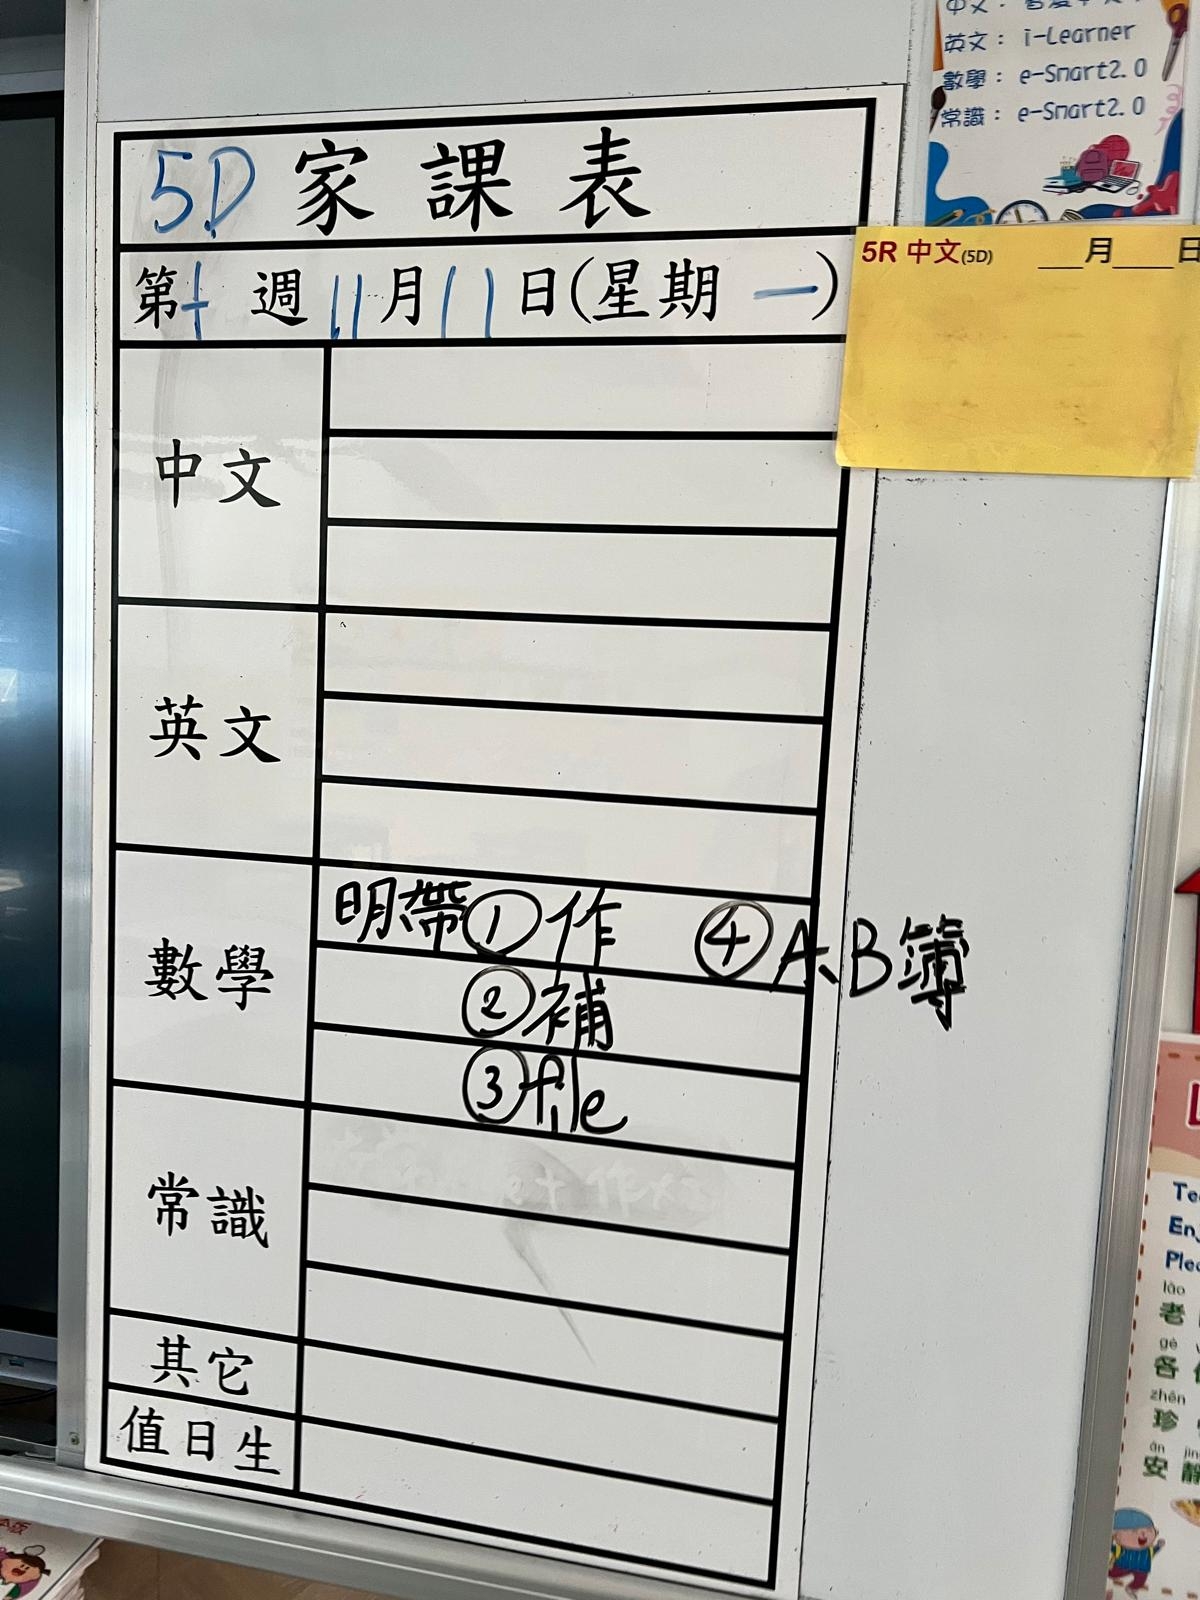 英文： i-Learner
數學： e-Smart2.0
常識： e-Smart2.0
5D 家課表
第十週 11月11日(星期一)
5R 中文(5D) ___月____日
中文
英文
數學
明帶①作 ④A、B簿
②補
③file
常識
其它
值日生
lào
老
gè
各
zhēn
珍
ān
安 靜